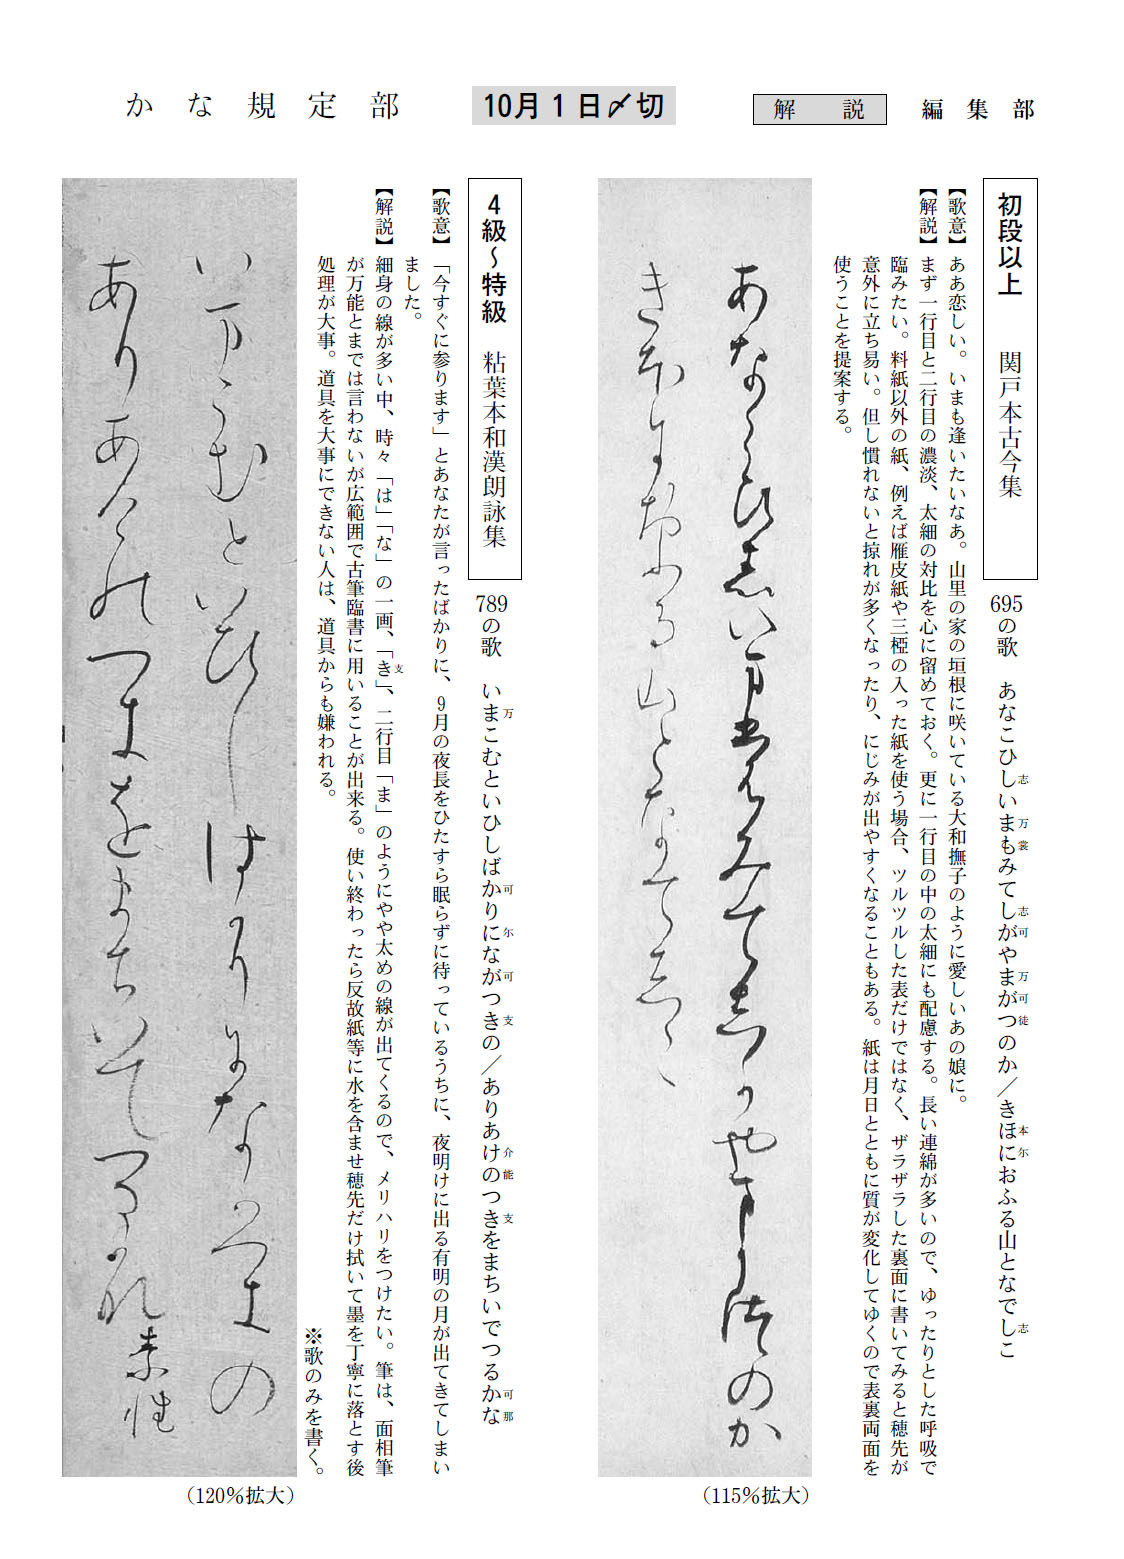 かな規定部
10月1日〆切
解説
編集部
初段以上　関戸本古今集
695の歌　あなこひしいまもみてしがやまがつのか／きほにおふる山となでしこ
志　万　裳　志　可　万　可　徒　本　尓　志
【歌意】ああ恋しい。いまも逢いたいなあ。山里の家の垣根に咲いている大和撫子のように愛しいあの娘に。
【解説】まず一行目と二行目の濃淡、太細の対比を心に留めておく。更に一行目の中の太細にも配慮する。長い連綿が多いので、ゆったりとした呼吸で
臨みたい。料紙以外の紙、例えば雁皮紙や三椏の入った紙を使う場合、ツルツルした表だけではなく、ザラザラした裏面に書いてみると穂先が
意外に立ち易い。但し慣れないと掠れが多くなったり、にじみが出やすくなることもある。紙は月日とともに質が変化してゆくので表裏両面を
使うことを提案する。
あなこひ志い万裳みて志可やま可徒のか
き本尓おふる山となて志こ
（115％拡大）
4級～特級　粘葉本和漢朗詠集
789の歌　いまこむといひしばかりにながつきの／ありあけのつきをまちいでつるかな
万　可　尓　可　支　介　能　支　可　那
【歌意】「今すぐに参ります」とあなたが言ったばかりに、9月の夜長をひたすら眠らずに待っているうちに、夜明けに出る有明の月が出てきてしまい
ました。
【解説】細身の線が多い中、時々「は」「な」の一画、「き」、二行目「ま」のようにやや太めの線が出てくるので、メリハリをつけたい。筆は、面相筆
支
が万能とまでは言わないが広範囲で古筆臨書に用いることが出来る。使い終わったら反故紙等に水を含ませ穂先だけ拭いて墨を丁寧に落とす後
処理が大事。道具を大事にできない人は、道具からも嫌われる。
※歌のみを書く。
い万こむといひしは可り尓な可つ支の
ありあ介能つ支をまちいてつる可那　素性
（120％拡大）